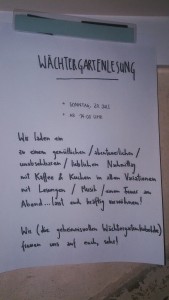 WÄCHTERGARTENLESUNG
• SONNTAG, 20. JULI
• AB 14:00 UHR
Wir laden ein
zu einem gemütlichen / abenteuerlichen /
wunderbaren / lieblichen Nachmittag
mit Kaffee & Kuchen in allen Variationen
mit Lesungen / Musik / einem Feuer am
Abend... lasst euch kräftig verwöhnen!
Wir (die geheimnisvollen Wächtergartenkobolde)
freuen uns auf euch, sehr!